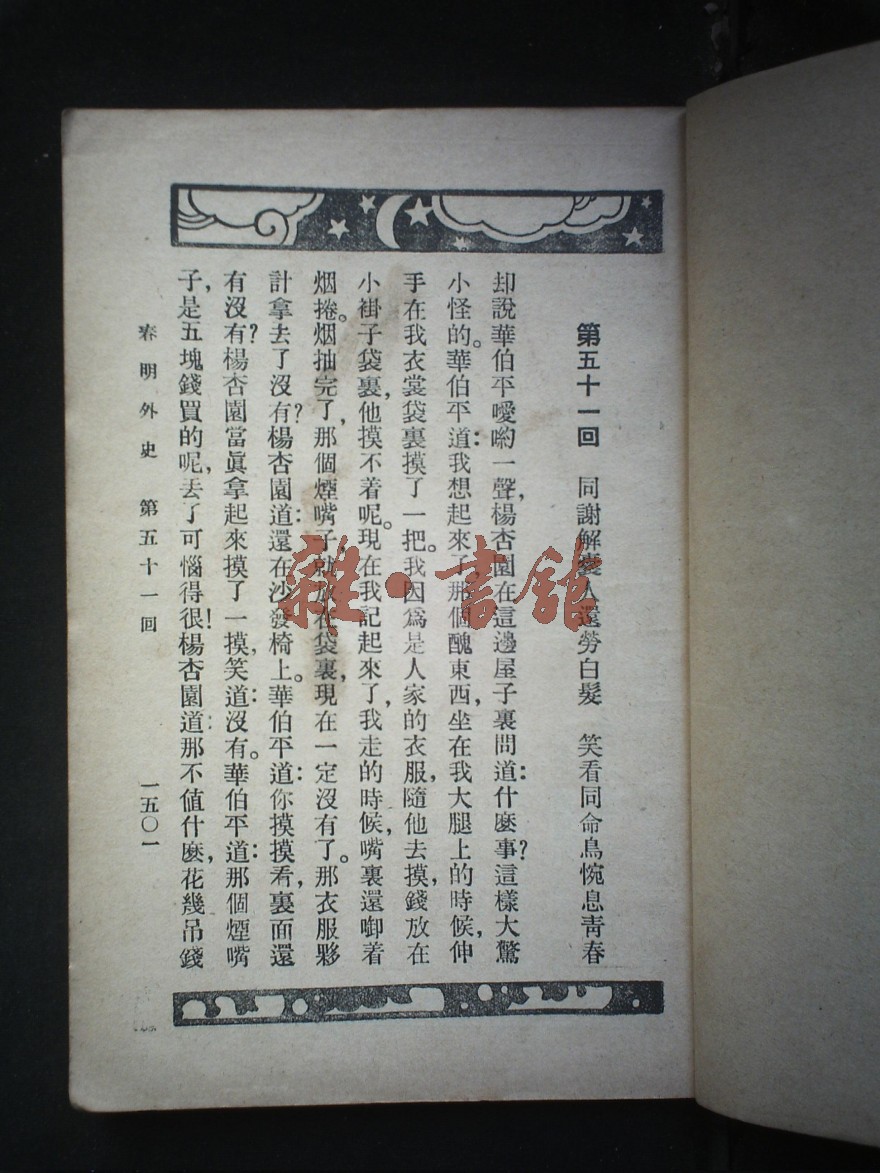 第五十一回　同謝解囊人還勞白髮　笑看同命鳥惋息青春
却說華伯平噯喲一聲，楊杏園在這邊屋子裏問道：什麼事？這樣大驚
小怪的。華伯平道：我想起來了，那個醜東西，坐在我大腿上的時候，伸
手在我衣裳袋裏摸了一把。我因爲是人家的衣服，隨他去摸，錢放在
小褂子袋裏，他摸不着呢。現在我記起來了，我走的時候，嘴裏還啣着
烟捲。烟抽完了，那個煙嘴子，就放在袋裏，現在一定沒有了。那衣服夥
計拿去了沒有？楊杏園道：還在沙發椅上。華伯平道：你摸摸看，裏面還
有沒有？楊杏園當眞拿起來摸了一摸，笑道：沒有。華伯平道：那個煙嘴
子，是五塊錢買的呢，丢了可惱得很！楊杏園道：那不値什麽，花幾吊錢
春明外史　第五十一回　一五〇一
雜·書館